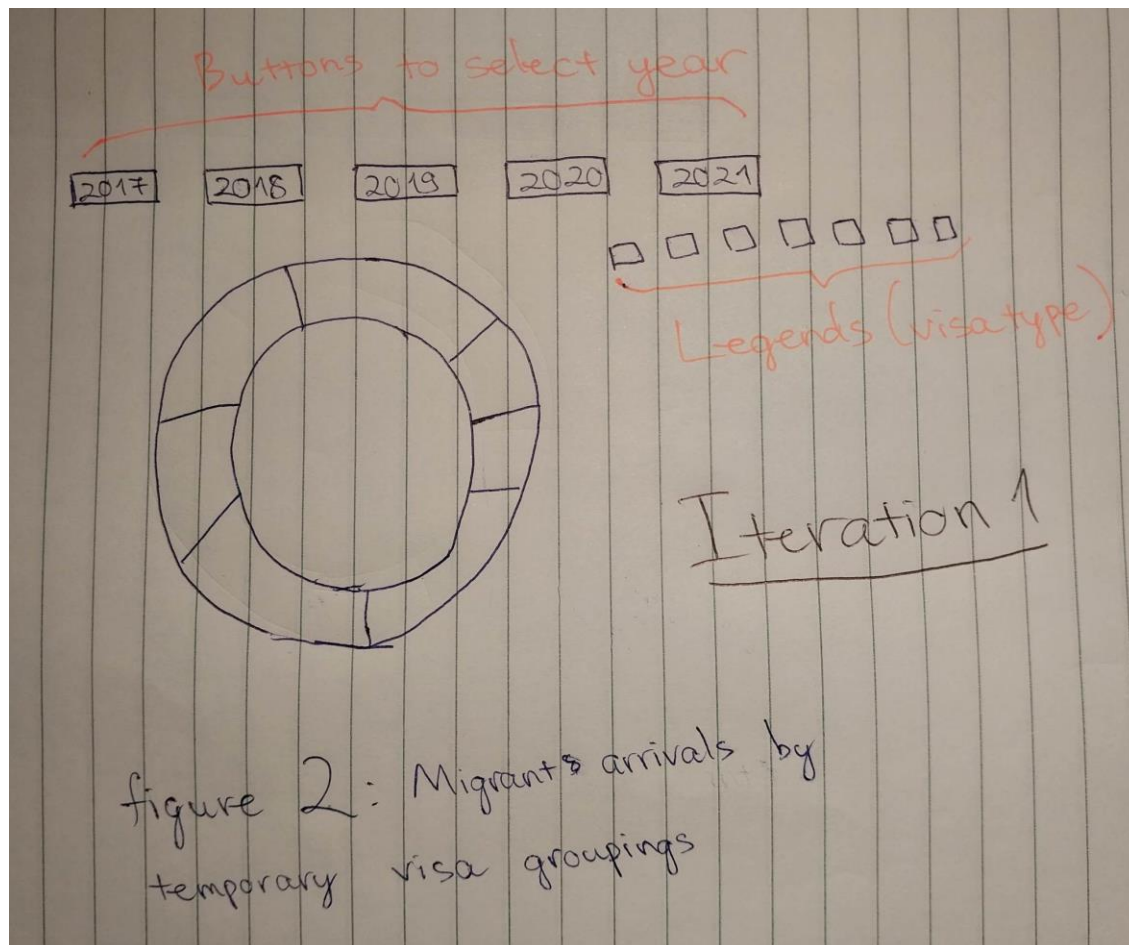 Buttons to select year
2017 2018 2019 2020 2021
Legends (visa type)
Iteration 1
figure 2: Migrants arrivals by
temporary visa groupings